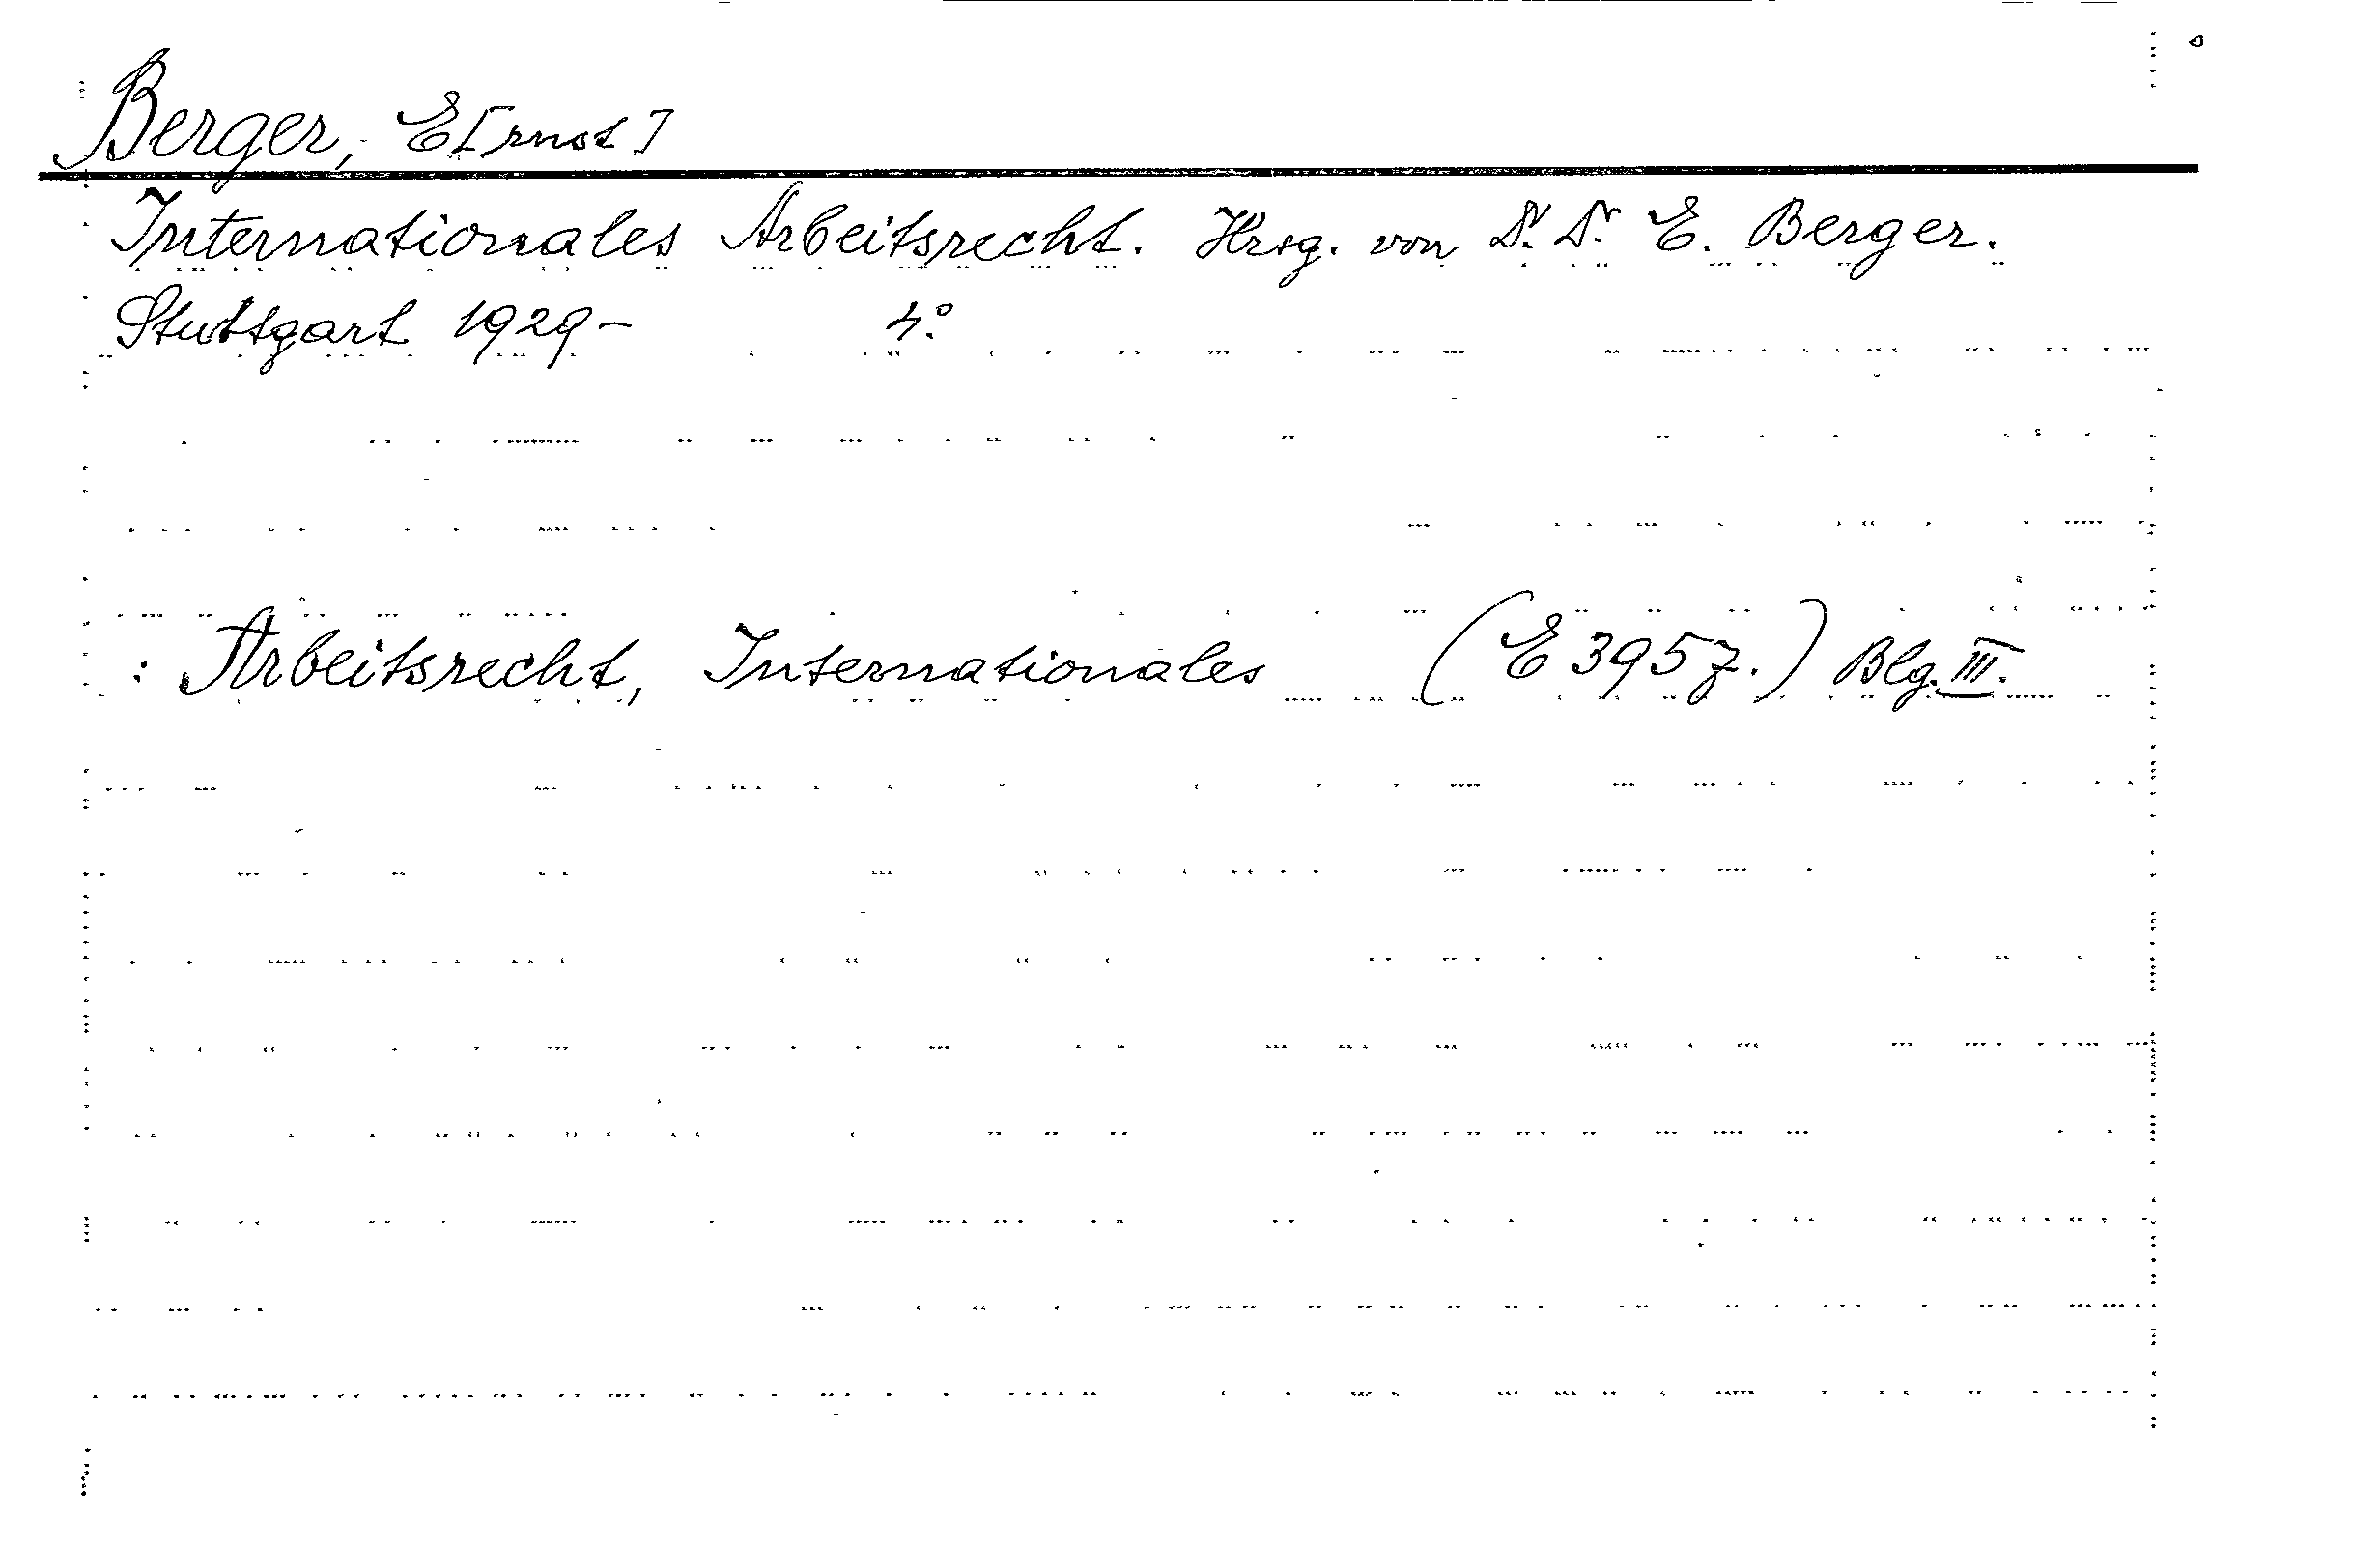 Berger, E[rnst]
Internationales Arbeitsrecht. Hrsg. von Dr. Dr. E. Berger.
Stuttgart 1929- 4.°
: Arbeitsrecht, Internationales (E 3957.) Blg. III.